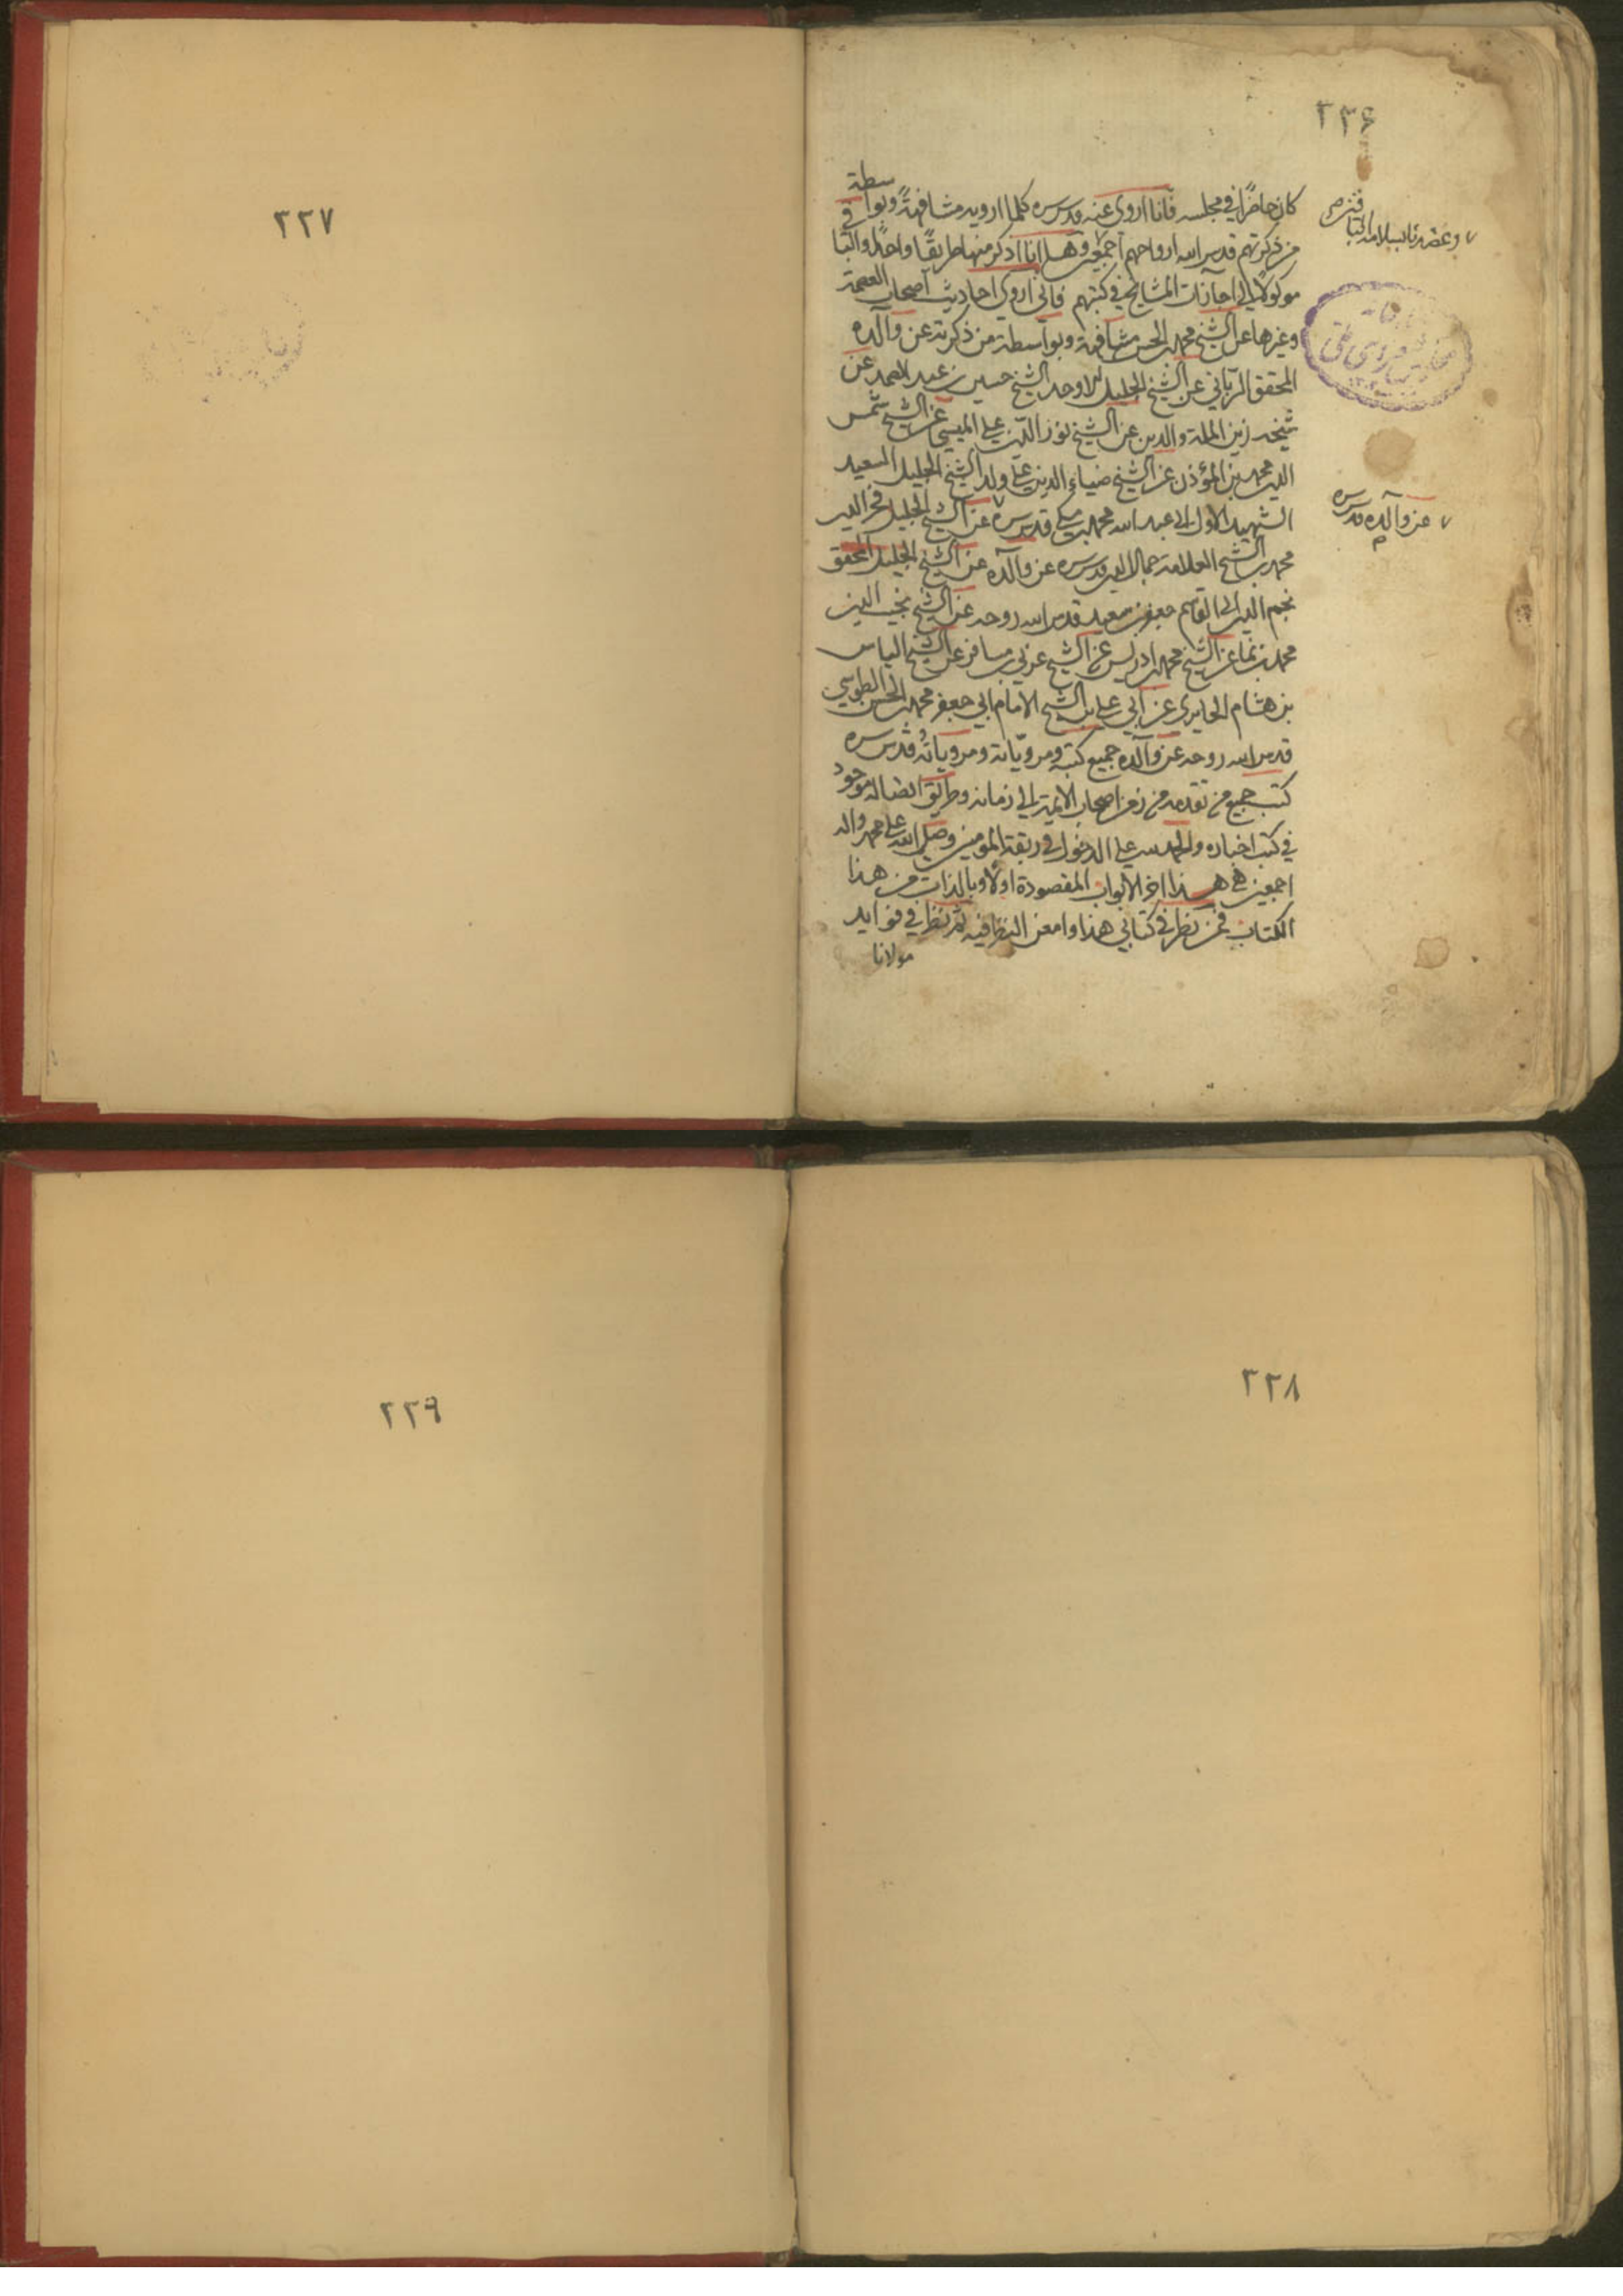 ٢٣۶
كان حاضرًا في مجلسه فانا اروى عنه قدس سره كلما ارويه مشافهةً وبوا سطة
من ذكرتهم قدس الله ارواحهم اجمعين وها انا اذكر منها طريقًا واحدًا والباقي
موكولًا الى اجازات المشايخ في كتبهم فانى اروى احاديث اصحاب العصمة
وغيرها عن الشيخ محمد بن الحسن مشافهة وبواسطة من ذكرته عن والده
المحقق الربانى عن الشيخ الجليل الاوحد الشيخ حسين بن عبد الصمد عن
شيخه زين الملة والدين عن الشيخ نور الدين على الميسى عن الشيخ شمس
الدين محمد بن المؤذن عن الشيخ ضياء الدين على ولد الشيخ الجليل السعيد
الشهيد الاول ابى عبد الله محمد بن مكى قدس سره عن الشيخ الجليل فخر الدين
محمد بن الشيخ العلامة جمال الدين قدس سره عن والده عن الشيخ الجليل المحقق
نجم الدين ابى القاسم جعفر بن سعيد قدس الله روحه عن الشيخ نجيب الدين
محمد بن نما عن الشيخ محمد بن ادريس عن الشيخ عربى بن مسافر عن الشيخ الياس
بن هشام الحايرى عن ابى على بن الشيخ الامام ابى جعفر محمد بن الحسن الطوسي
قدس الله روحه عن والده جميع كتبه ومروياته ومروياته قدس سره
كتب جميع من تقدمه من زمن اصحاب الايمة الى زمانه وطريق اتصاله موجود
في كتب اخباره والحمد لله على الدخول في ربقة المؤمنين وصلى الله على محمد واله
اجمعين هذا اخر الابواب المقصودة اولًا وبالذات من هذا
الكتاب فمن نظر في كتابي هذا وامعن النظر فيه ثم نظر في فوايد
مولانا
عن والده قدس سره
٢٢٧
٢٢٨
٢٢٩